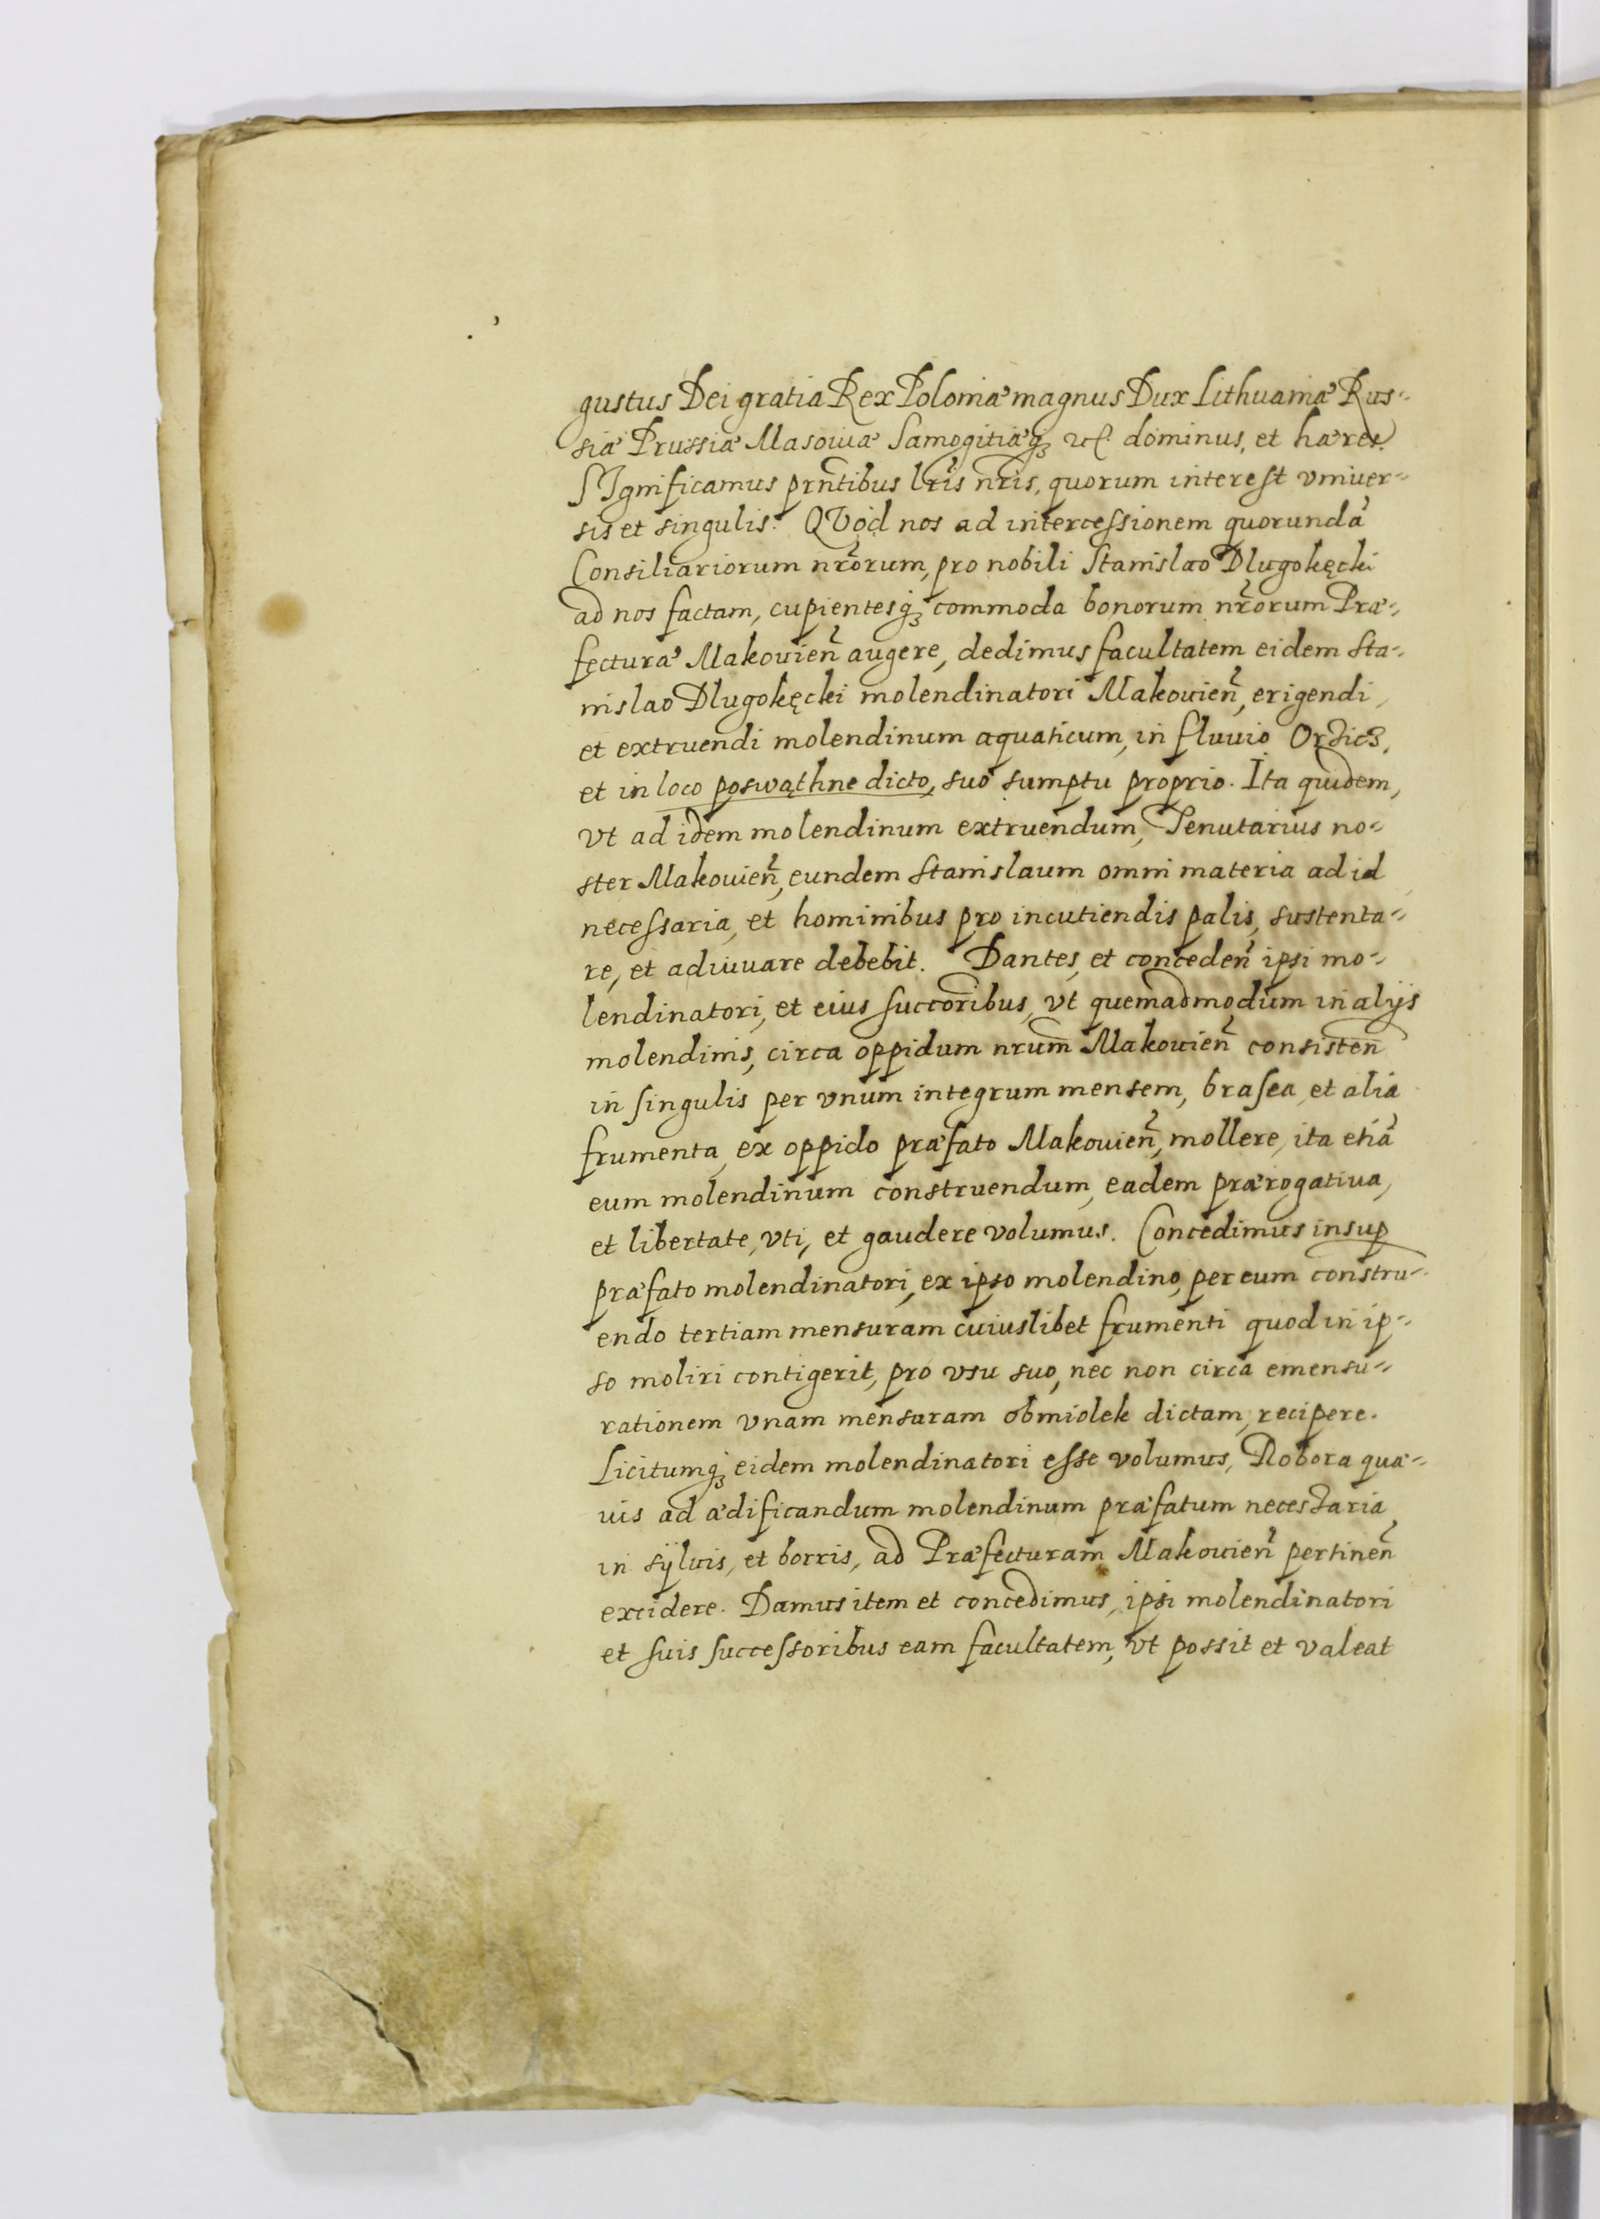 gustus Dei gratia Rex Poloniæ magnus Dux Lithuaniæ Rus-
siæ Prussiæ Masoviæ Samogitiæq₃ dominus, et hæres.
SIgnificamus prñtibus lr̃is nr̃is, quorum interest vniuer-
sis et singulis. QVod nos ad intercessionem quorundã
Consiliariorum nr̃orum, pro nobili Stanislao Dlugokęcki
ad nos factam, cupientesq₃ commoda bonorum nr̃orum Præ-
fecturæ Makouieñ augere, dedimus facultatem eidem Sta-
nislao Dlugokęcki molendinatori Makouieñ, erigendi
et extruendi molendinum aquaticum, in fluuio Orzicz,
et in loco poswąthne dicto, suo sumptu proprio. Ita quidem,
vt ad idem molendinum extruendum, Tenutarius no-
ster Makouieñ, eundem Stanislaum omni materia ad id
necessaria, et hominibus pro incutiendis palis, sustenta-
re, et adiuuare debebit. Dantes, et concedeñ ipsi mo-
lendinatori, et eius succoribus, vt quemadmodum in alijs
molendinis, circa oppidum nrũm Makouieñ consisteñ
in singulis per vnum integrum mensem, brasea, et alia
frumenta, ex oppido præfato Makouieñ, mollere, ita etiã
eum molendinum construendum, eadem prærogatiua,
et libertate, vti, et gaudere volumus. Concedimus insup
præfato molendinatori, ex ipso molendino, per eum constru-
endo tertiam mensuram cuiuslibet frumenti quod in ip-
so moliri contigerit, pro vsu suo, nec non circa emensu-
rationem vnam mensuram obmiolek dictam, recipere.
Licitumq₃ eidem molendinatori esse volumus, Robora quæ-
uis ad ædificandum molendinum præfatum necessaria
in sÿluis, et borris, ad Præfecturam Makouieñ pertineñ
excidere. Damus item et concedimus, ipsi molendinatori
et suis successoribus eam facultatem, vt possit et valeat